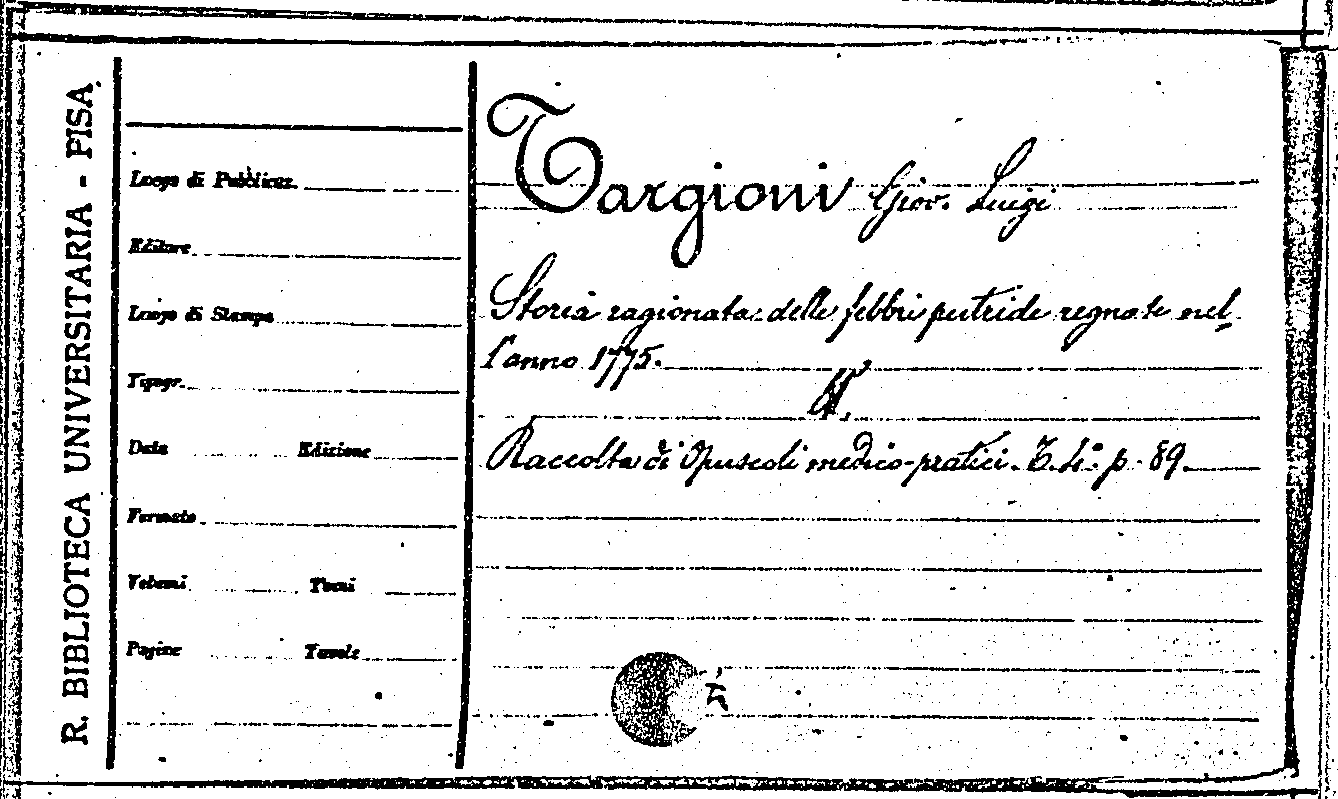 R. BIBLIOTECA UNIVERSITARIA - PISA
Luogo di Pubblicaz.
Editore
Luogo di Stampa
Tipogr.
Data Edizione
Formato
Volumi Tomi
Pagine Tavole
Targioni Giov. Luigi
Storia ragionata delle febbri putride regnate nel
l'anno 1775.
Raccolta di Opuscoli medico-pratici. T. 4.° p. 89.